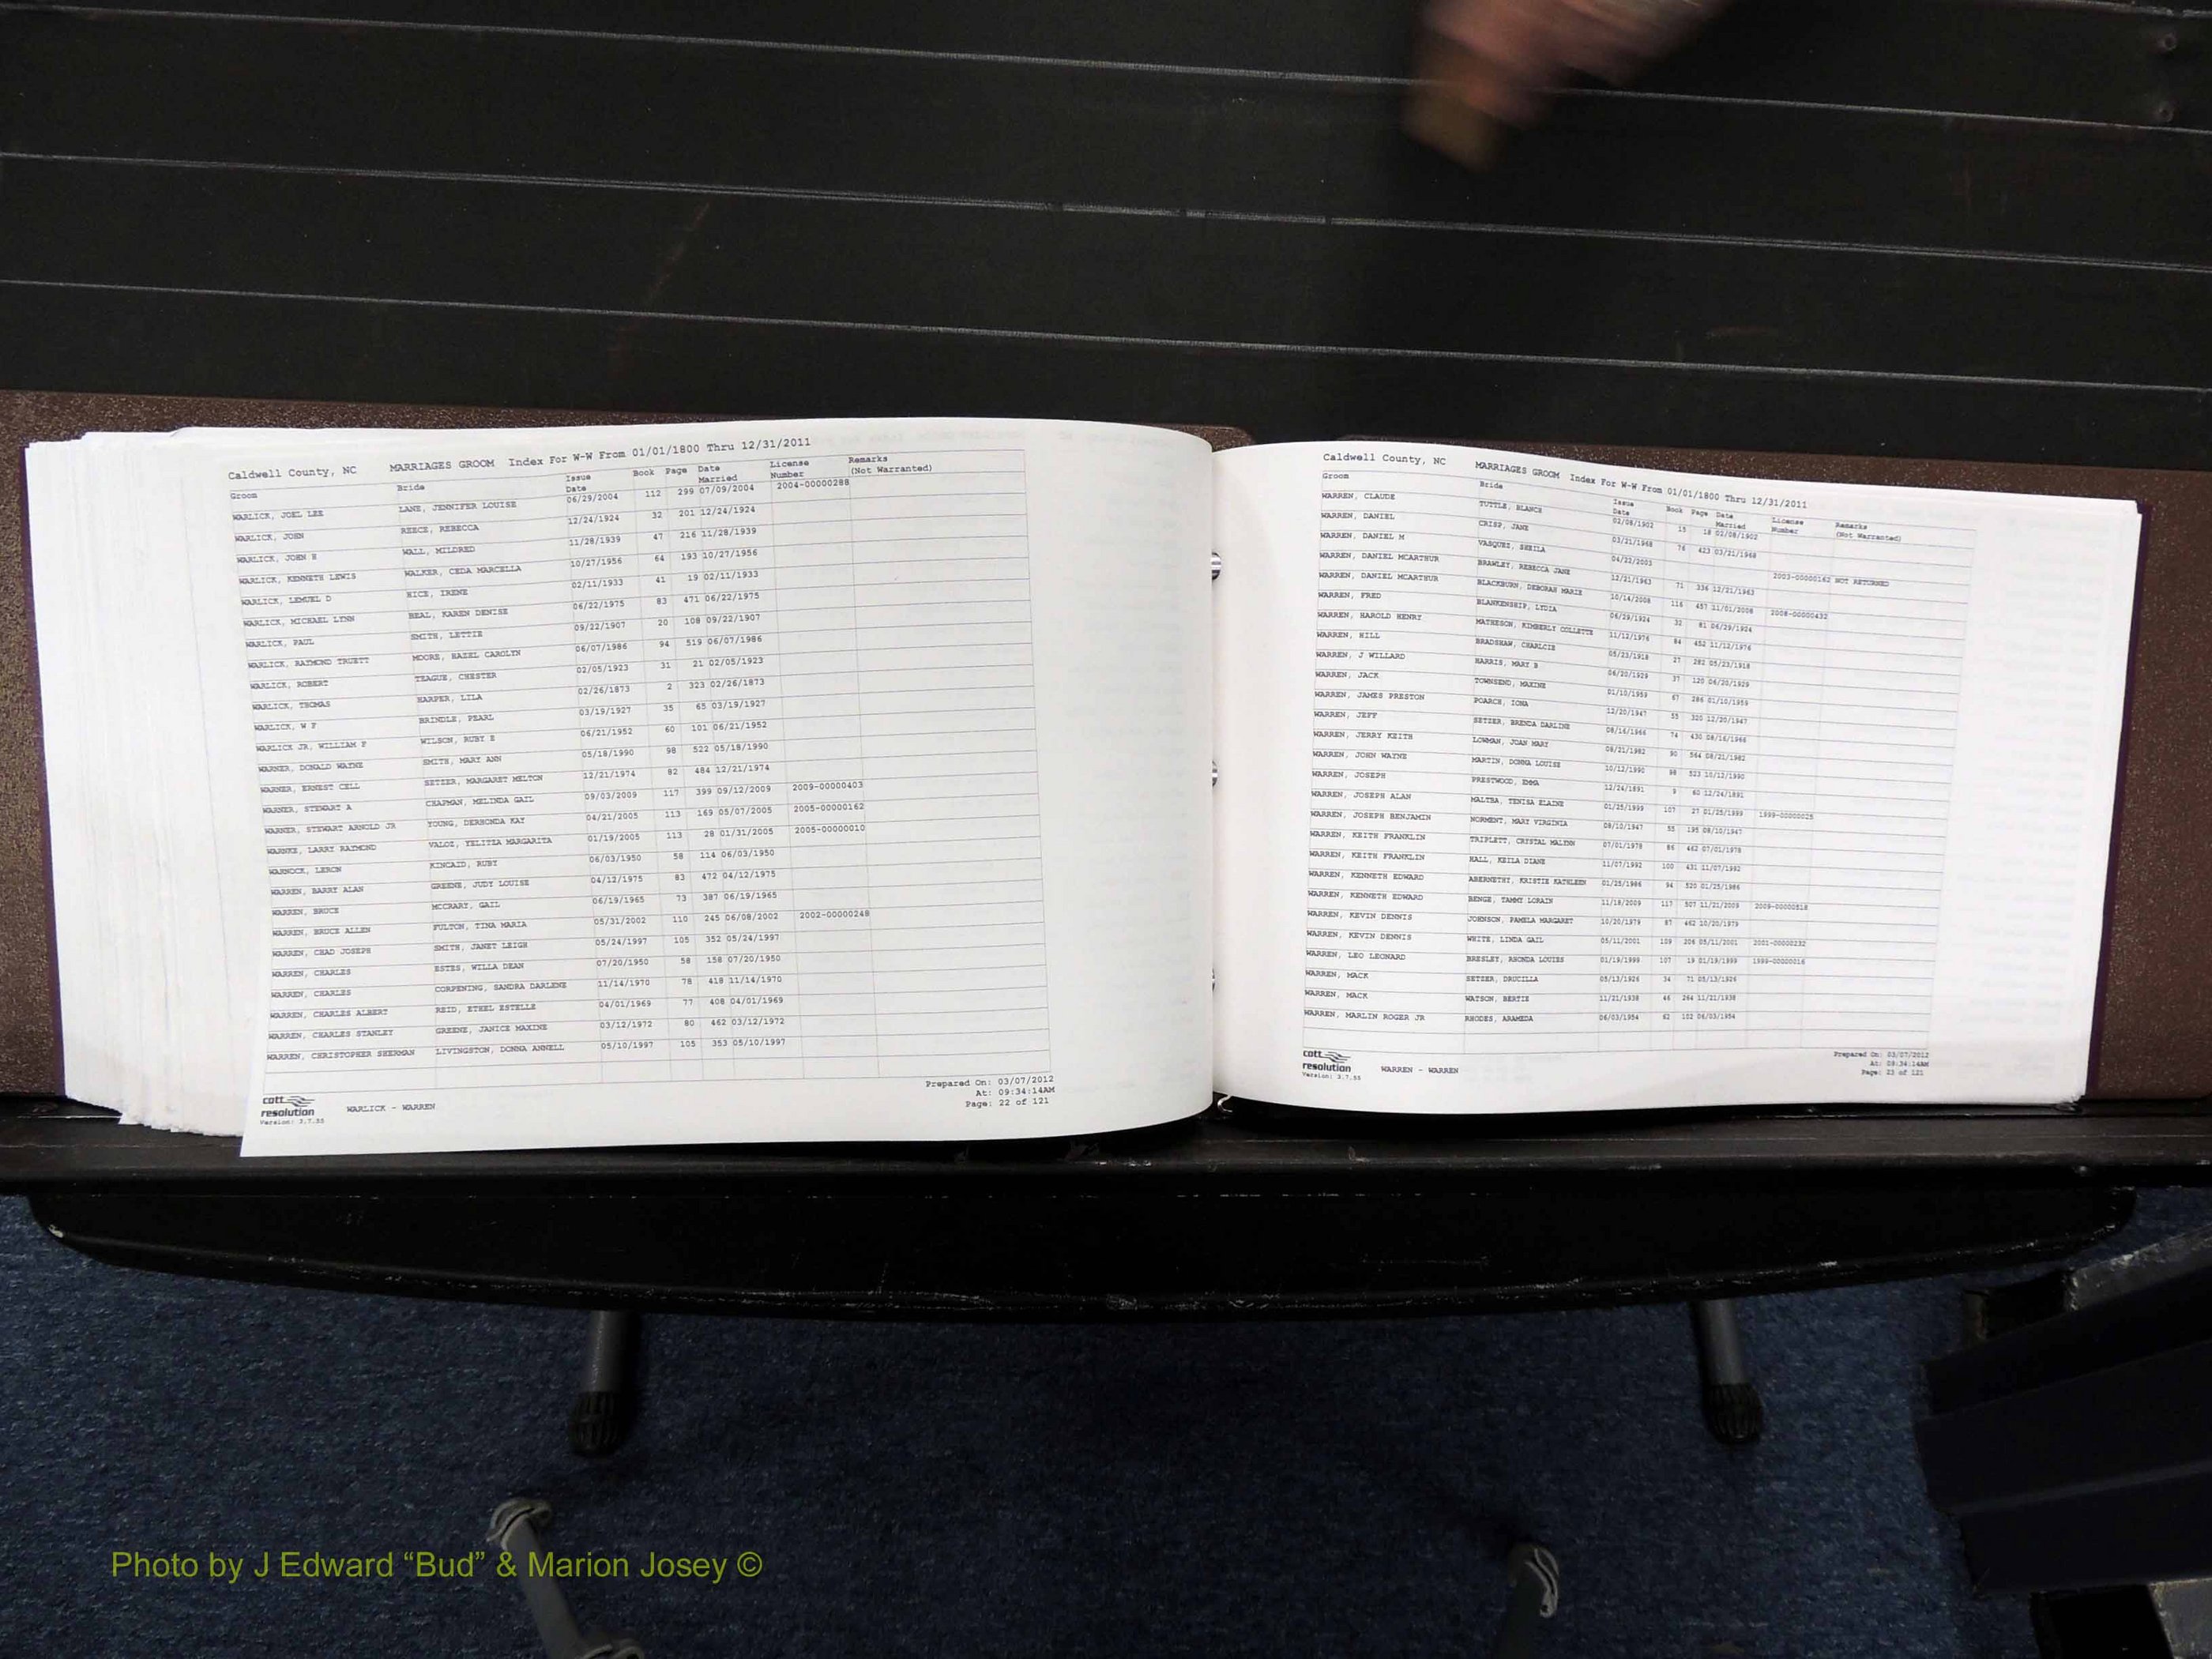 Caldwell County, NC MARRIAGES GROOM Index For W-W From 01/01/1800 Thru 12/31/2011
Groom Bride Issue Date Book Page Date Married License Number Remarks (Not Warranted)
WARLICK, JOEL LEE LANE, JENNIFER LOUISE 06/29/2004 112 299 07/09/2004 2004-00000288
WARLICK, JOHN REECE, REBECCA 12/24/1924 32 201 12/24/1924
WARLICK, JOHN H WALL, MILDRED 11/28/1939 47 216 11/28/1939
WARLICK, KENNETH LEWIS WALKER, CEDA MARCELLA 10/27/1956 64 193 10/27/1956
WARLICK, LEMUEL D RICE, IRENE 02/11/1933 41 19 02/11/1933
WARLICK, MICHAEL LYNN BEAL, KAREN DENISE 06/22/1975 83 471 06/22/1975
WARLICK, PAUL SMITH, LETTIE 09/22/1907 20 108 09/22/1907
WARLICK, RAYMOND TRUETT MOORE, HAZEL CAROLYN 06/07/1986 94 519 06/07/1986
WARLICK, ROBERT TEAGUE, CHESTER 02/05/1923 31 21 02/05/1923
WARLICK, THOMAS HARPER, LILA 02/26/1873 2 323 02/26/1873
WARLICK, W F BRINDLE, PEARL 03/19/1927 35 65 03/19/1927
WARLICK JR, WILLIAM F WILSON, RUBY E 06/21/1952 60 101 06/21/1952
WARNER, DONALD WAYNE SMITH, MARY ANN 05/18/1990 98 522 05/18/1990
WARNER, ERNEST CELL SETZER, MARGARET MELTON 12/21/1974 82 484 12/21/1974
WARNER, STEWART A CHAPMAN, MELINDA GAIL 09/03/2009 117 399 09/12/2009 2009-00000403
WARNER, STEWART ARNOLD JR YOUNG, DERHONDA KAY 04/21/2005 113 169 05/07/2005 2005-00000162
WARNKE, LARRY RAYMOND VALOZ, YELITZA MARGARITA 01/19/2005 113 28 01/31/2005 2005-00000010
WARNOCK, LERON KINCAID, RUBY 06/03/1950 58 114 06/03/1950
WARREN, BARRY ALAN GREENE, JUDY LOUISE 04/12/1975 83 472 04/12/1975
WARREN, BRUCE MCCRARY, GAIL 06/19/1965 73 387 06/19/1965
WARREN, BRUCE ALLEN FULTON, TINA MARIA 05/31/2002 110 245 06/08/2002 2002-00000248
WARREN, CHAD JOSEPH SMITH, JANET LEIGH 05/24/1997 105 352 05/24/1997
WARREN, CHARLES ESTES, WILLA DEAN 07/20/1950 58 158 07/20/1950
WARREN, CHARLES CORPENING, SANDRA DARLENE 11/14/1970 78 418 11/14/1970
WARREN, CHARLES ALBERT REID, ETHEL ESTELLE 04/01/1969 77 408 04/01/1969
WARREN, CHARLES STANLEY GREENE, JANICE MAXINE 03/12/1972 80 462 03/12/1972
WARREN, CHRISTOPHER SHERMAN LIVINGSTON, DONNA ANNELL 05/10/1997 105 353 05/10/1997
cott resolution
Version: 3.7.55
WARLICK - WARREN
Prepared On: 03/07/2012
At: 09:34:14AM
Page: 22 of 121
Caldwell County, NC MARRIAGES GROOM Index For W-W From 01/01/1800 Thru 12/31/2011
Groom Bride Issue Date Book Page Date Married License Number Remarks (Not Warranted)
WARREN, CLAUDE TUTTLE, BLANCH 02/08/1902 15 18 02/08/1902
WARREN, DANIEL CRISP, JANE 03/21/1968 76 423 03/21/1968
WARREN, DANIEL M VASQUEZ, SHEILA 04/22/2003 2003-00000162 NOT RETURNED
WARREN, DANIEL MCARTHUR BRAWLEY, REBECCA JANE 12/21/1963 71 336 12/21/1963
WARREN, DANIEL MCARTHUR BLACKBURN, DEBORAH MARIE 10/14/2008 116 457 11/01/2008 2008-00000432
WARREN, FRED BLANKENSHIP, LYDIA 06/29/1924 32 81 06/29/1924
WARREN, HAROLD HENRY MATHESON, KIMBERLY COLLETTE 11/12/1976 84 452 11/12/1976
WARREN, HILL BRADSHAW, CHARLCIE 05/23/1918 27 282 05/23/1918
WARREN, J WILLARD HARRIS, MARY B 06/20/1929 37 120 06/20/1929
WARREN, JACK TOWNSEND, MAXINE 01/10/1959 67 286 01/10/1959
WARREN, JAMES PRESTON POARCH, IONA 12/20/1947 55 320 12/20/1947
WARREN, JEFF SETZER, BRENDA DARLINE 08/16/1966 74 430 08/16/1966
WARREN, JERRY KEITH LOWMAN, JOAN MARY 08/21/1982 90 564 08/21/1982
WARREN, JOHN WAYNE MARTIN, DONNA LOUISE 10/12/1990 98 523 10/12/1990
WARREN, JOSEPH PRESTWOOD, EMMA 12/24/1891 9 60 12/24/1891
WARREN, JOSEPH ALAN MALTBA, TENISA ELAINE 01/25/1999 107 27 01/25/1999 1999-00000025
WARREN, JOSEPH BENJAMIN NORMENT, MARY VIRGINIA 08/10/1947 55 195 08/10/1947
WARREN, KEITH FRANKLIN TRIPLETT, CRYSTAL MALYNN 07/01/1978 86 462 07/01/1978
WARREN, KEITH FRANKLIN HALL, KEILA DIANE 11/07/1992 100 431 11/07/1992
WARREN, KENNETH EDWARD ABERNETHY, KRISTIE KATHLEEN 01/25/1986 94 520 01/25/1986
WARREN, KENNETH EDWARD BENGE, TAMMY LORAIN 11/18/2009 117 507 11/21/2009 2009-00000518
WARREN, KEVIN DENNIS JOHNSON, PAMELA MARGARET 10/20/1979 87 462 10/20/1979
WARREN, KEVIN DENNIS WHITE, LINDA GAIL 05/11/2001 109 206 05/11/2001 2001-00000232
WARREN, LEO LEONARD BRESLEY, RHONDA LOUIES 01/19/1999 107 19 01/19/1999 1999-00000016
WARREN, MACK SETZER, DRUCILLA 05/13/1926 34 71 05/13/1926
WARREN, MACK WATSON, BERTIE 11/21/1938 46 264 11/21/1938
WARREN, MARLIN ROGER JR RHODES, ARAMEDA 06/03/1954 62 102 06/03/1954
cott resolution
Version: 3.7.55
WARREN - WARREN
Prepared On: 03/07/2012
At: 09:34:14AM
Page: 23 of 121
Photo by J Edward “Bud” & Marion Josey ©